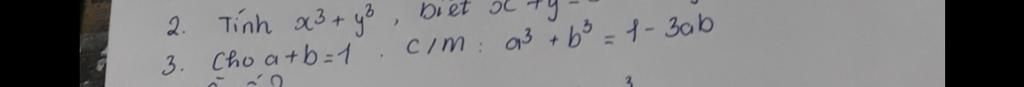 2. Tính x³ + y³, biết x + y
3. Cho a + b = 1. C/m: a³ + b³ = 1 - 3ab